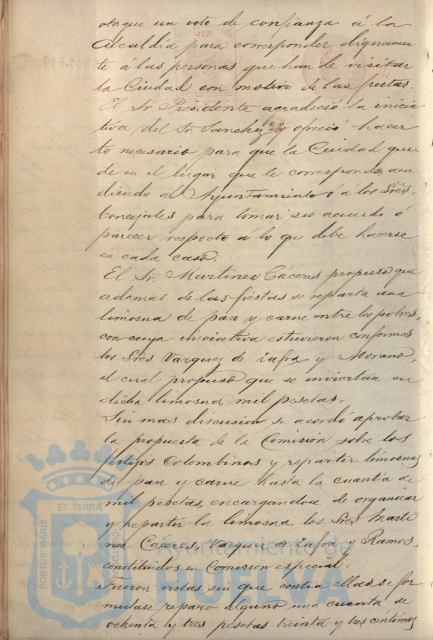 otorgue un voto de confianza á la
Alcaldia para corresponder dignamen
te á las personas que han de visitar
la Ciudad con motivo de las fiestas.
El Sr. Presidente agradeció la inicia
tiva del Sr. Sanchez y ofreció hacer
lo necesario para que la Ciudad que
de en el lugar que le corresponde, acu
diendo al Ayuntamiento ó a los Sres.
Concejales para tomar su acuerdo ó
parecer respecto á lo que debe hacerse
en cada caso.
El Sr. Martinez Caceres propuso que
ademas de las fiestas se reparta una
limosna de pan y carne entre los pobres,
con cuya iniciativa estuvieron conformes
los Sres Vazquez de Zafra y Morano,
el cual propuso que se inviertan en
dicha limosna mil pesetas.
Sin mas discusion se acordó aprobar
la propuesta de la Comisión sobre los
festejos Colombinos y repartir limosnas
de pan y carne hasta la cuantia de
mil pesetas, encargandose de organizar
y repartir la limosna los Sres Marti
nez Caceres, Vazquez de Zafra y Ramos,
constituidos en Comision especial.
Fueron vistas sin que contra ellas se for
mulase reparo alguno una cuenta de
ochenta y tres pesetas treinta y tres centimos
PORTUS MARIS
ET TERRAE
Ayuntamiento de
HUELVA